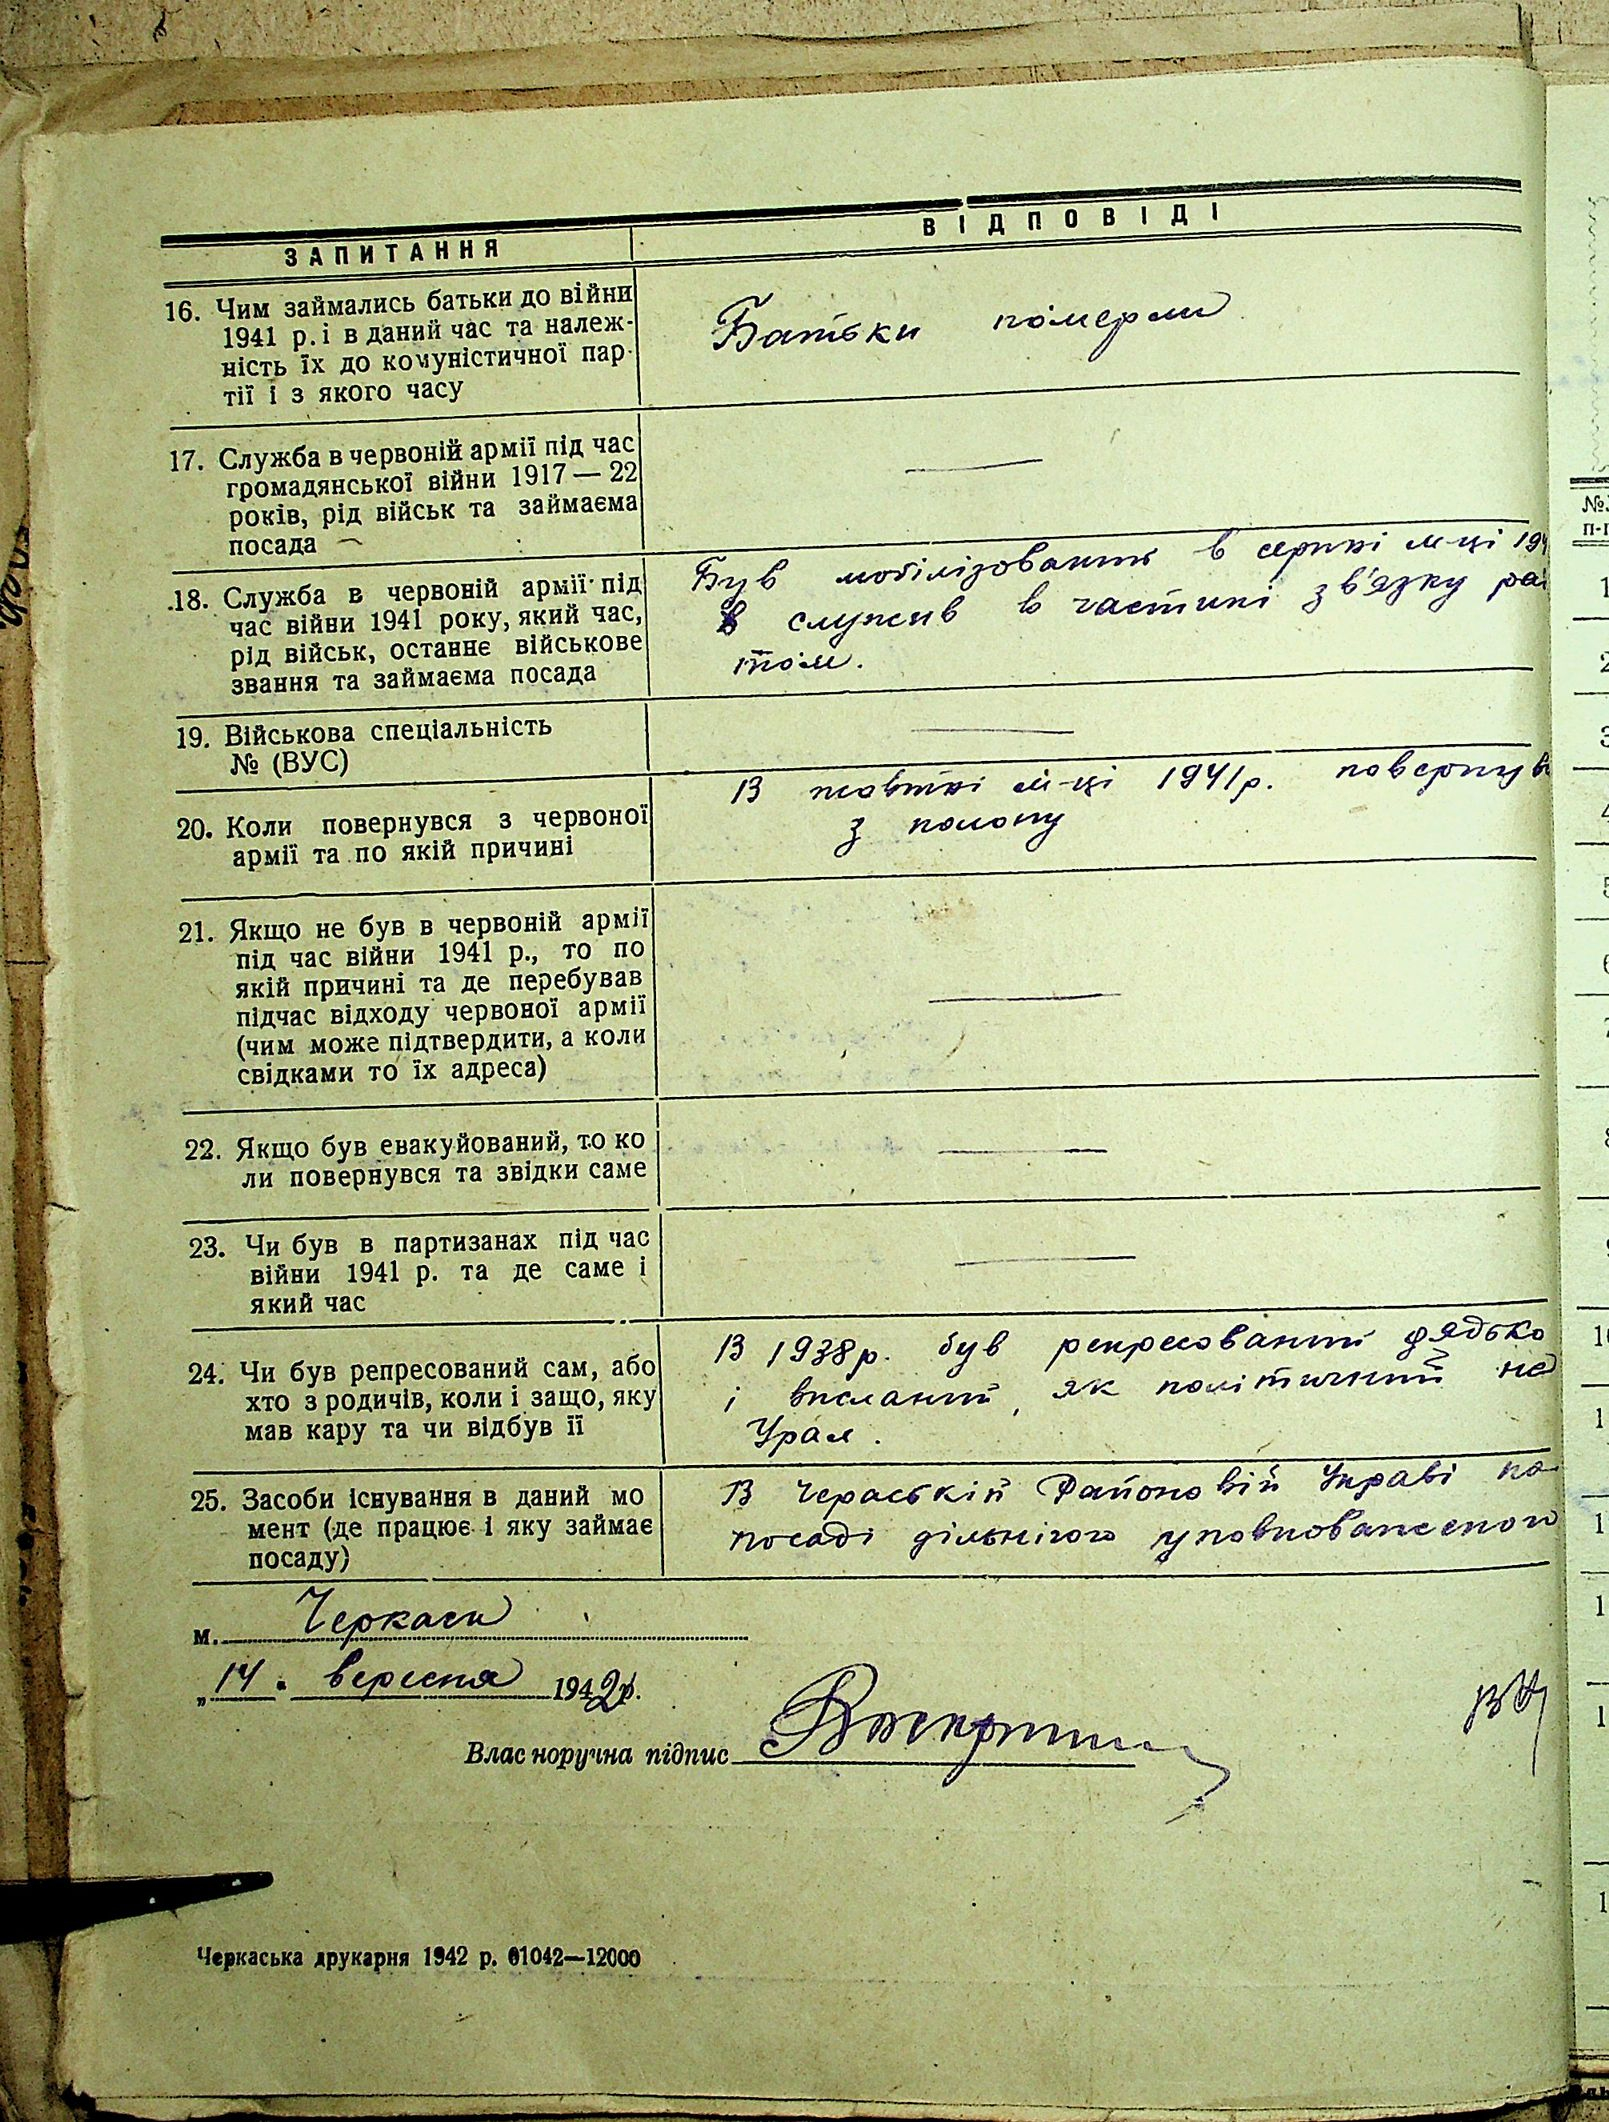 ЗАПИТАННЯ
ВІДПОВІДІ
16. Чим займались батьки до війни
1941 р. і в даний час та належ-
ність їх до комуністичної пар-
тії і з якого часу
Батьки померли
17. Служба в червоній армії під час
громадянської війни 1917 — 22
років, рід військ та займаєма
посада
18. Служба в червоній армії під
час війни 1941 року, який час,
рід військ, останнє військове
звання та займаєма посада
Був мобілізований в серпні м-ці 194
служив в частині зв'язку
том.
19. Військова спеціальність
№ (ВУС)
20. Коли повернувся з червоної
армії та по якій причині
В жовтні м-ці 1941 р. повернув
з полону
21. Якщо не був в червоній армії
під час війни 1941 р., то по
якій причині та де перебував
підчас відходу червоної армії
(чим може підтвердити, а коли
свідками то їх адреса)
22. Якщо був евакуйований, то ко
ли повернувся та звідки саме
23. Чи був в партизанах під час
війни 1941 р. та де саме і
який час
24. Чи був репресований сам, або
хто з родичів, коли і защо, яку
мав кару та чи відбув її
В 1938 р. був репресований дядько
і висланий, як політичний на
Урал.
25. Засоби існування в даний мо
мент (де працює і яку займає
посаду)
В Чераській Районовій Управі на
посаді дільничого уповноваженого
м. Черкаси
„14" вересня 1942 р.
Власноручна підпис
Черкаська друкарня 1942 р. 01042—12000
№
п-п